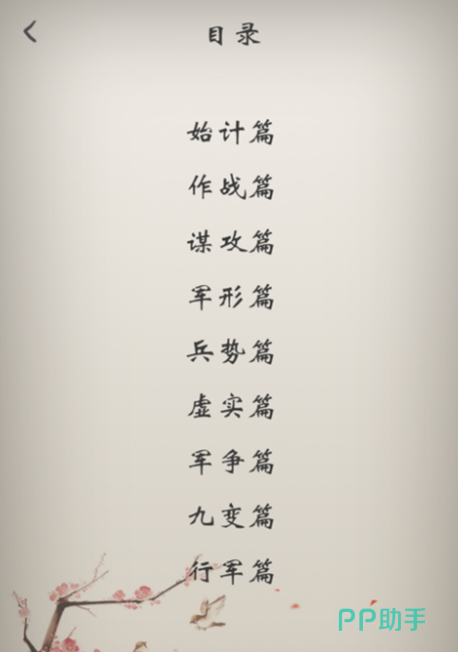 目录
始计篇
作战篇
谋攻篇
军形篇
兵势篇
虚实篇
军争篇
九变篇
行军篇
PP助手